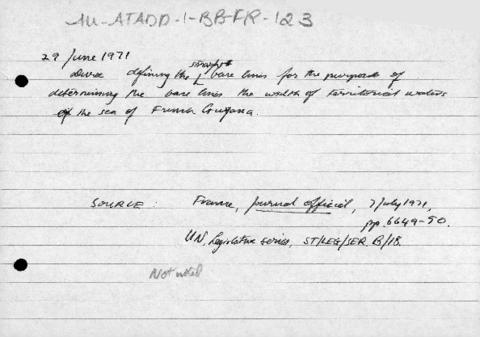 AU-ATADD-1-BB-FR-123
29 June 1971
straight
defining the base lines for the purpose of
determining the base lines the width of territorial waters
of the sea of French Guyana.
SOURCE: France, Journal officiel, 7 July 1971,
pp. 6649-50.
U.N. Legislative series, ST/LEG/SER. B/18.
Not noted